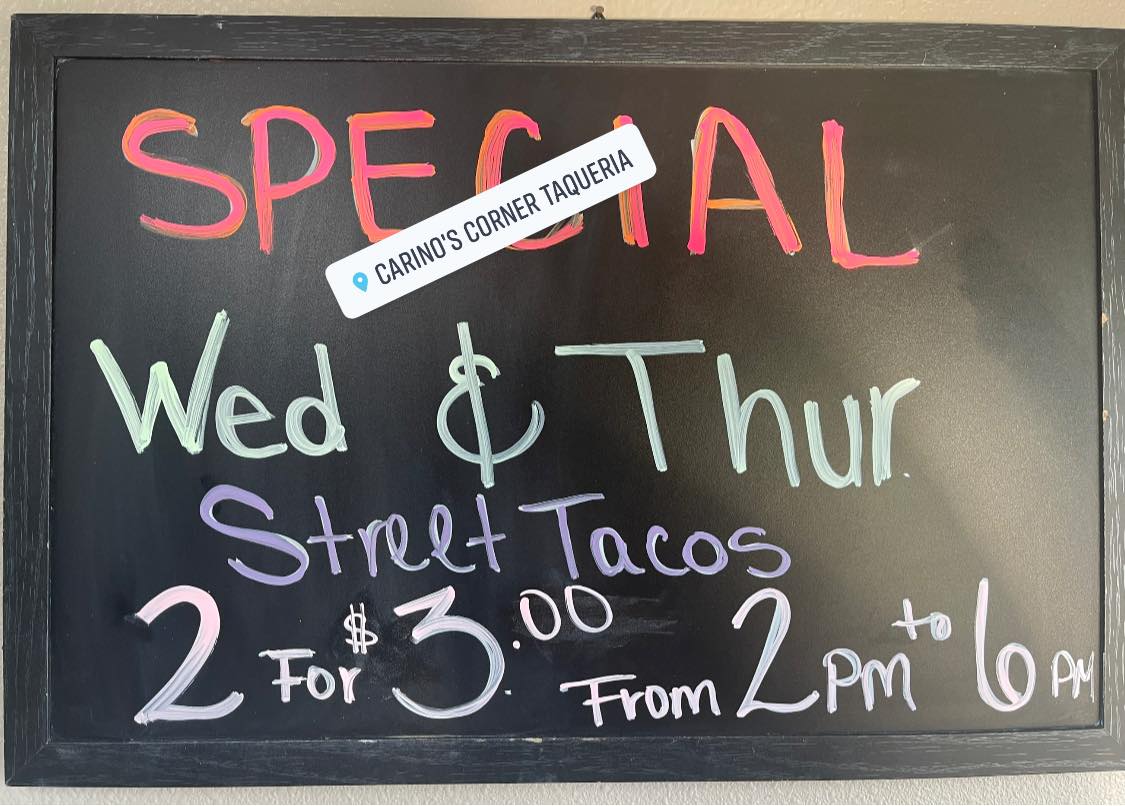 SPECIAL
CARINO'S CORNER TAQUERIA
Wed & Thur.
Street Tacos
2 For $3.00 From 2pm to 6pm